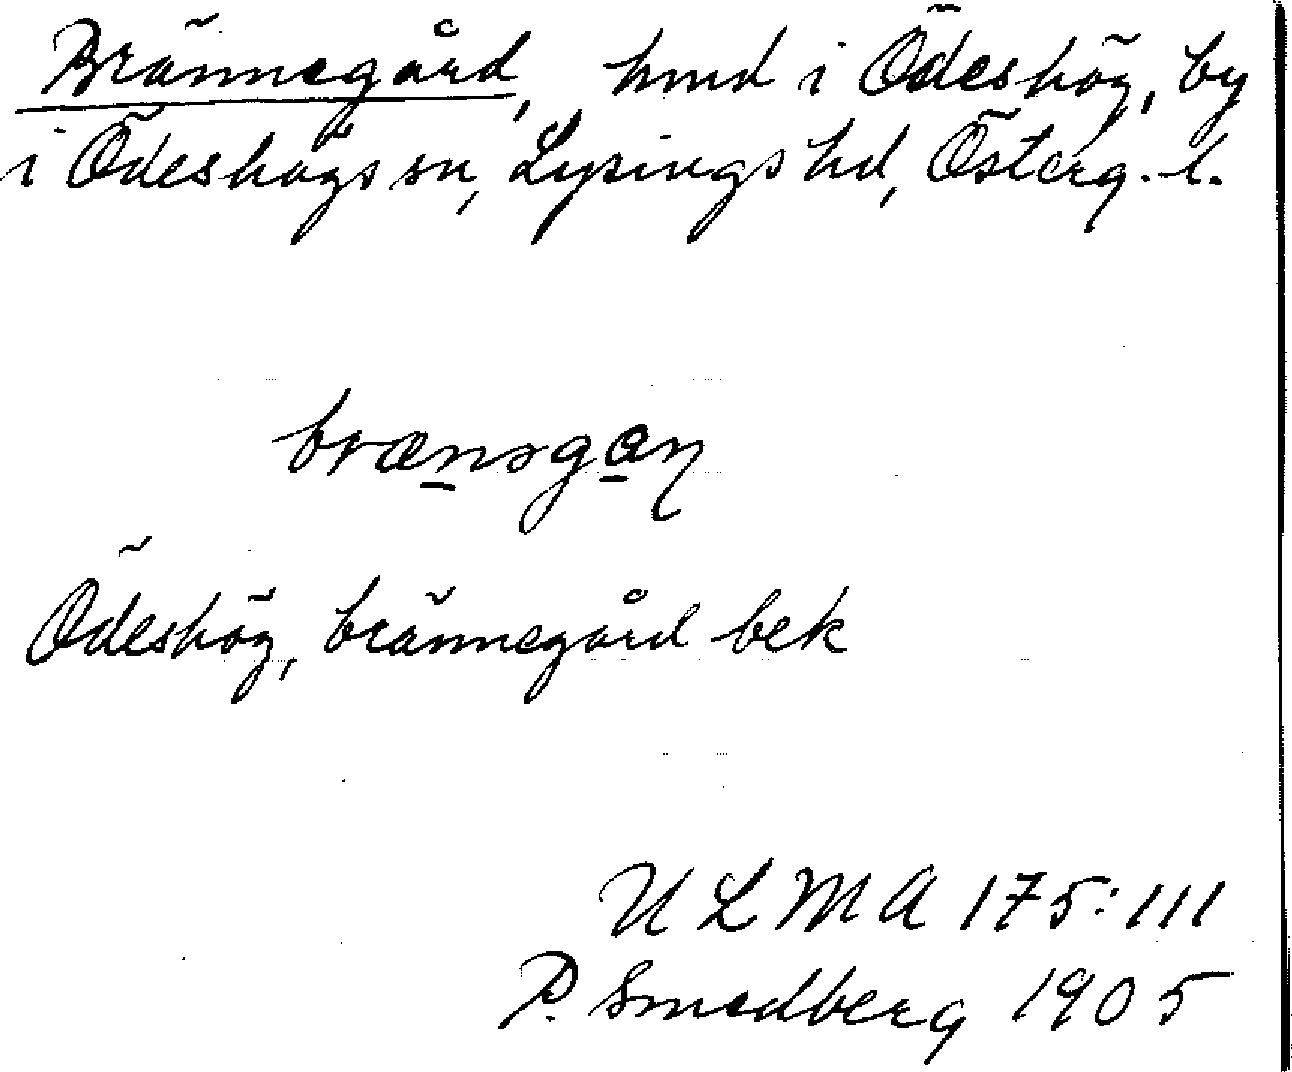 Brännegård, hmd i Ödeshög, by
i Ödeshögs sn, Lysings hd, Österg. l.
Ödeshög, brännegård bek
ULMA 175:111
P. Smedberg 1905